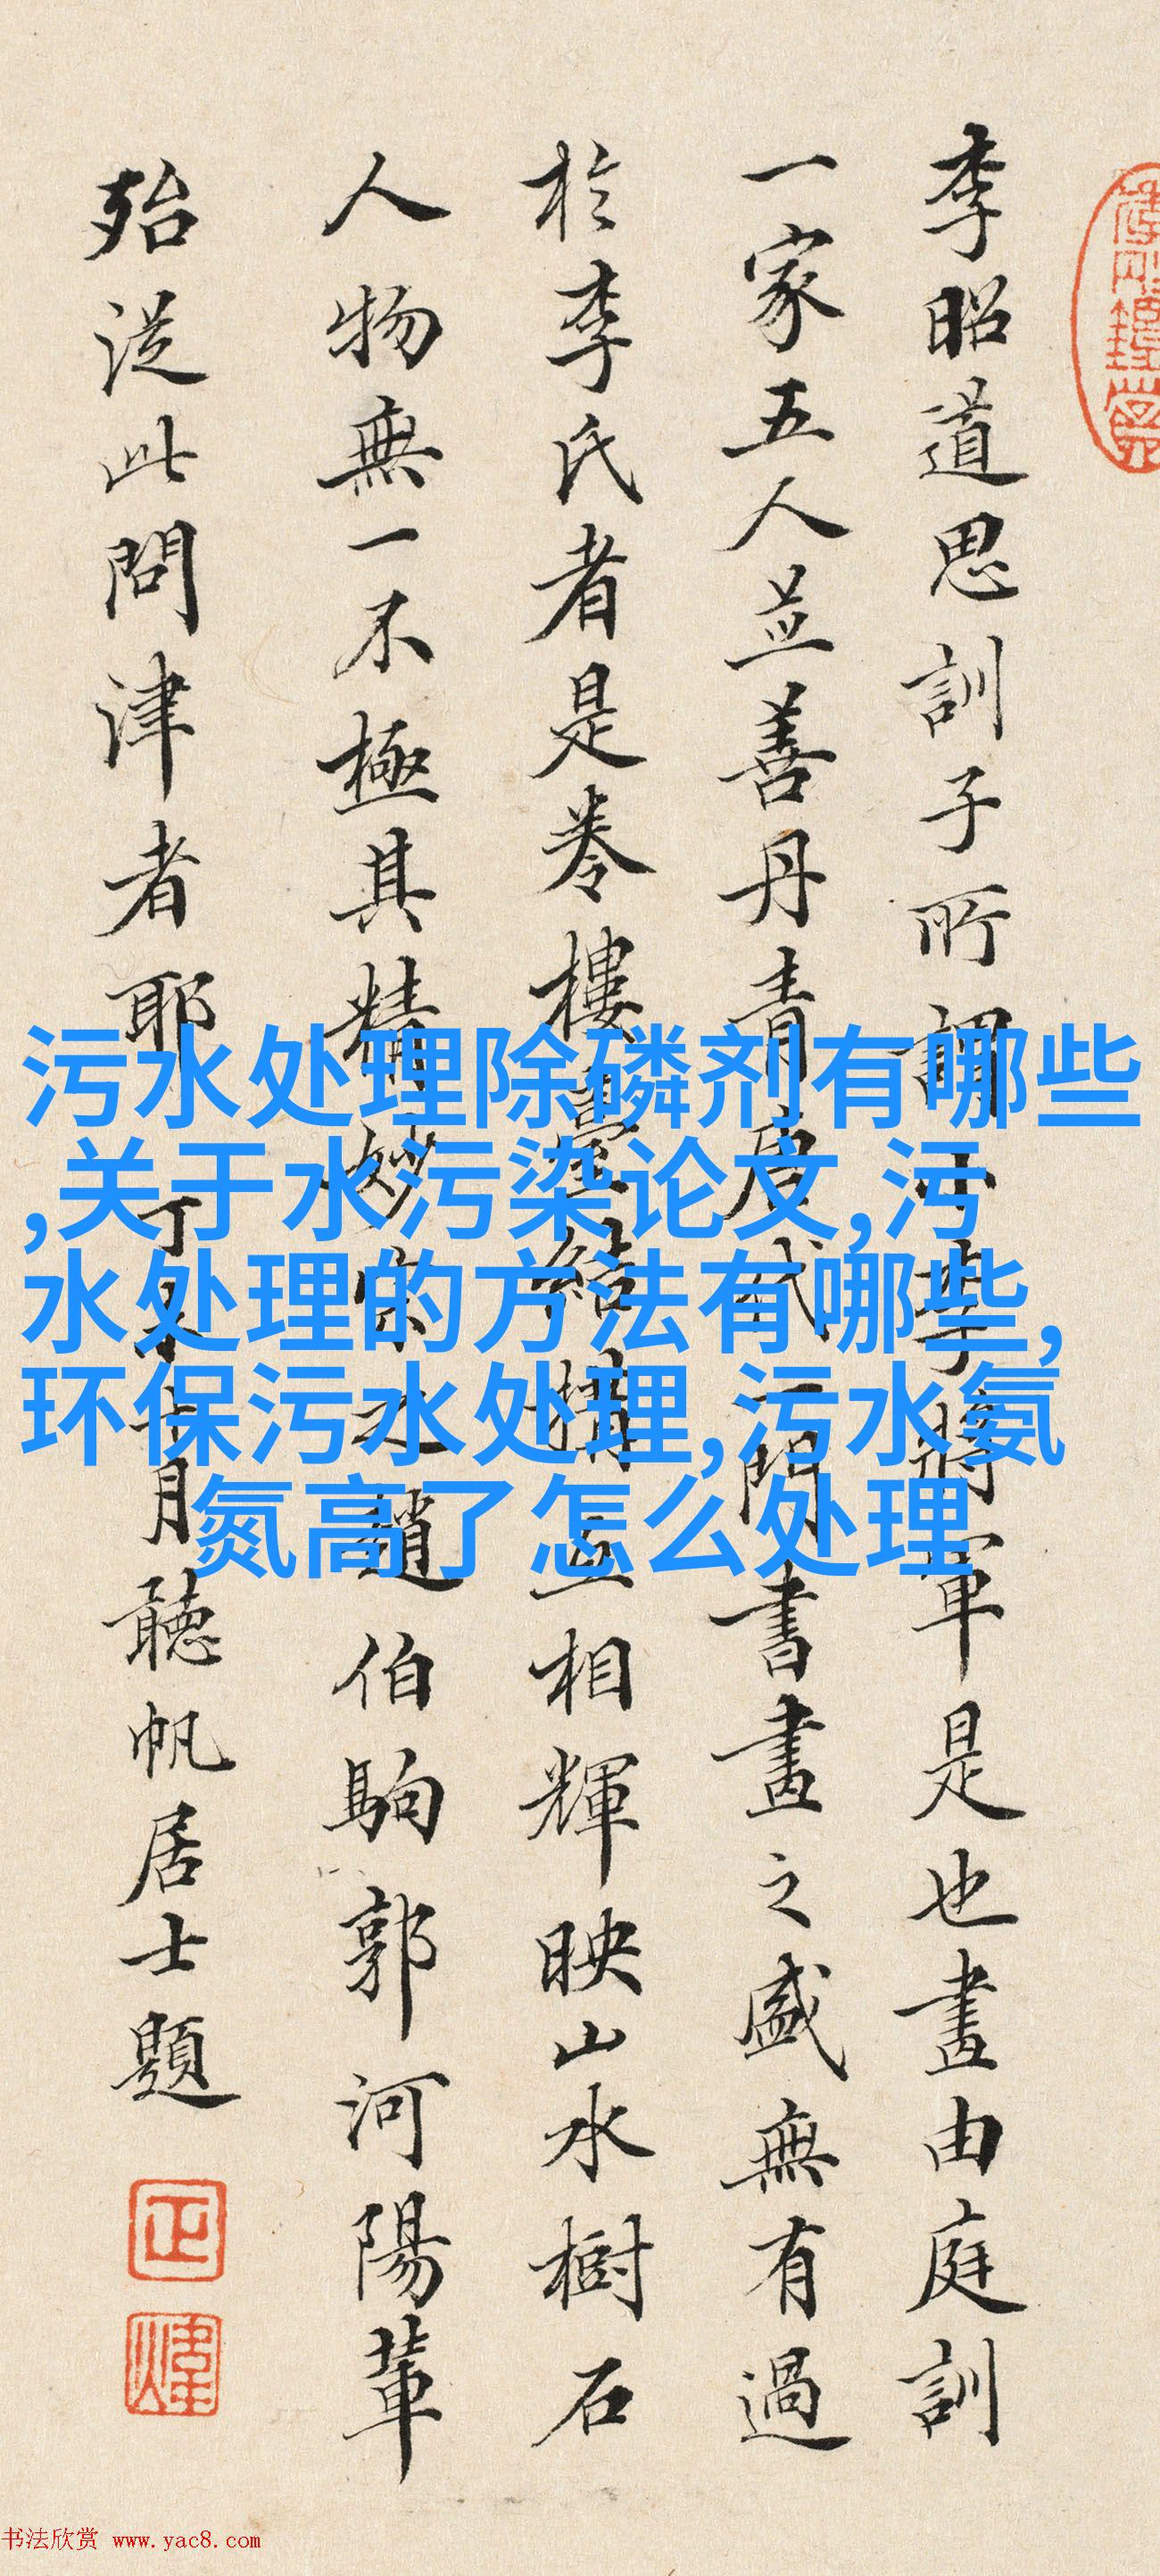 李昭道思訓子所謂小李將軍是也畫由庭訓
一家五人並善丹青唐代一門書畫之盛無有過
於李氏者是卷樓臺結構並相輝映山水樹石
人物無一不極其精妙宋之趙伯駒郭河陽輩
殆從此問津者耶
丁未十月聽帆居士題
污水处理除磷剂有哪些
,关于水污染论文,污
水处理的方法有哪些,
环保污水处理,污水氨
氮高了怎么处理
书法欣赏 www.yac8.com